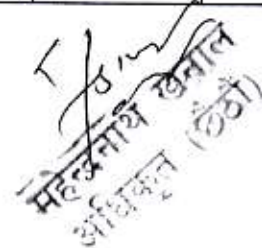 महेन्द्रनाथ खनाल
अधिकृत (छैठौं)